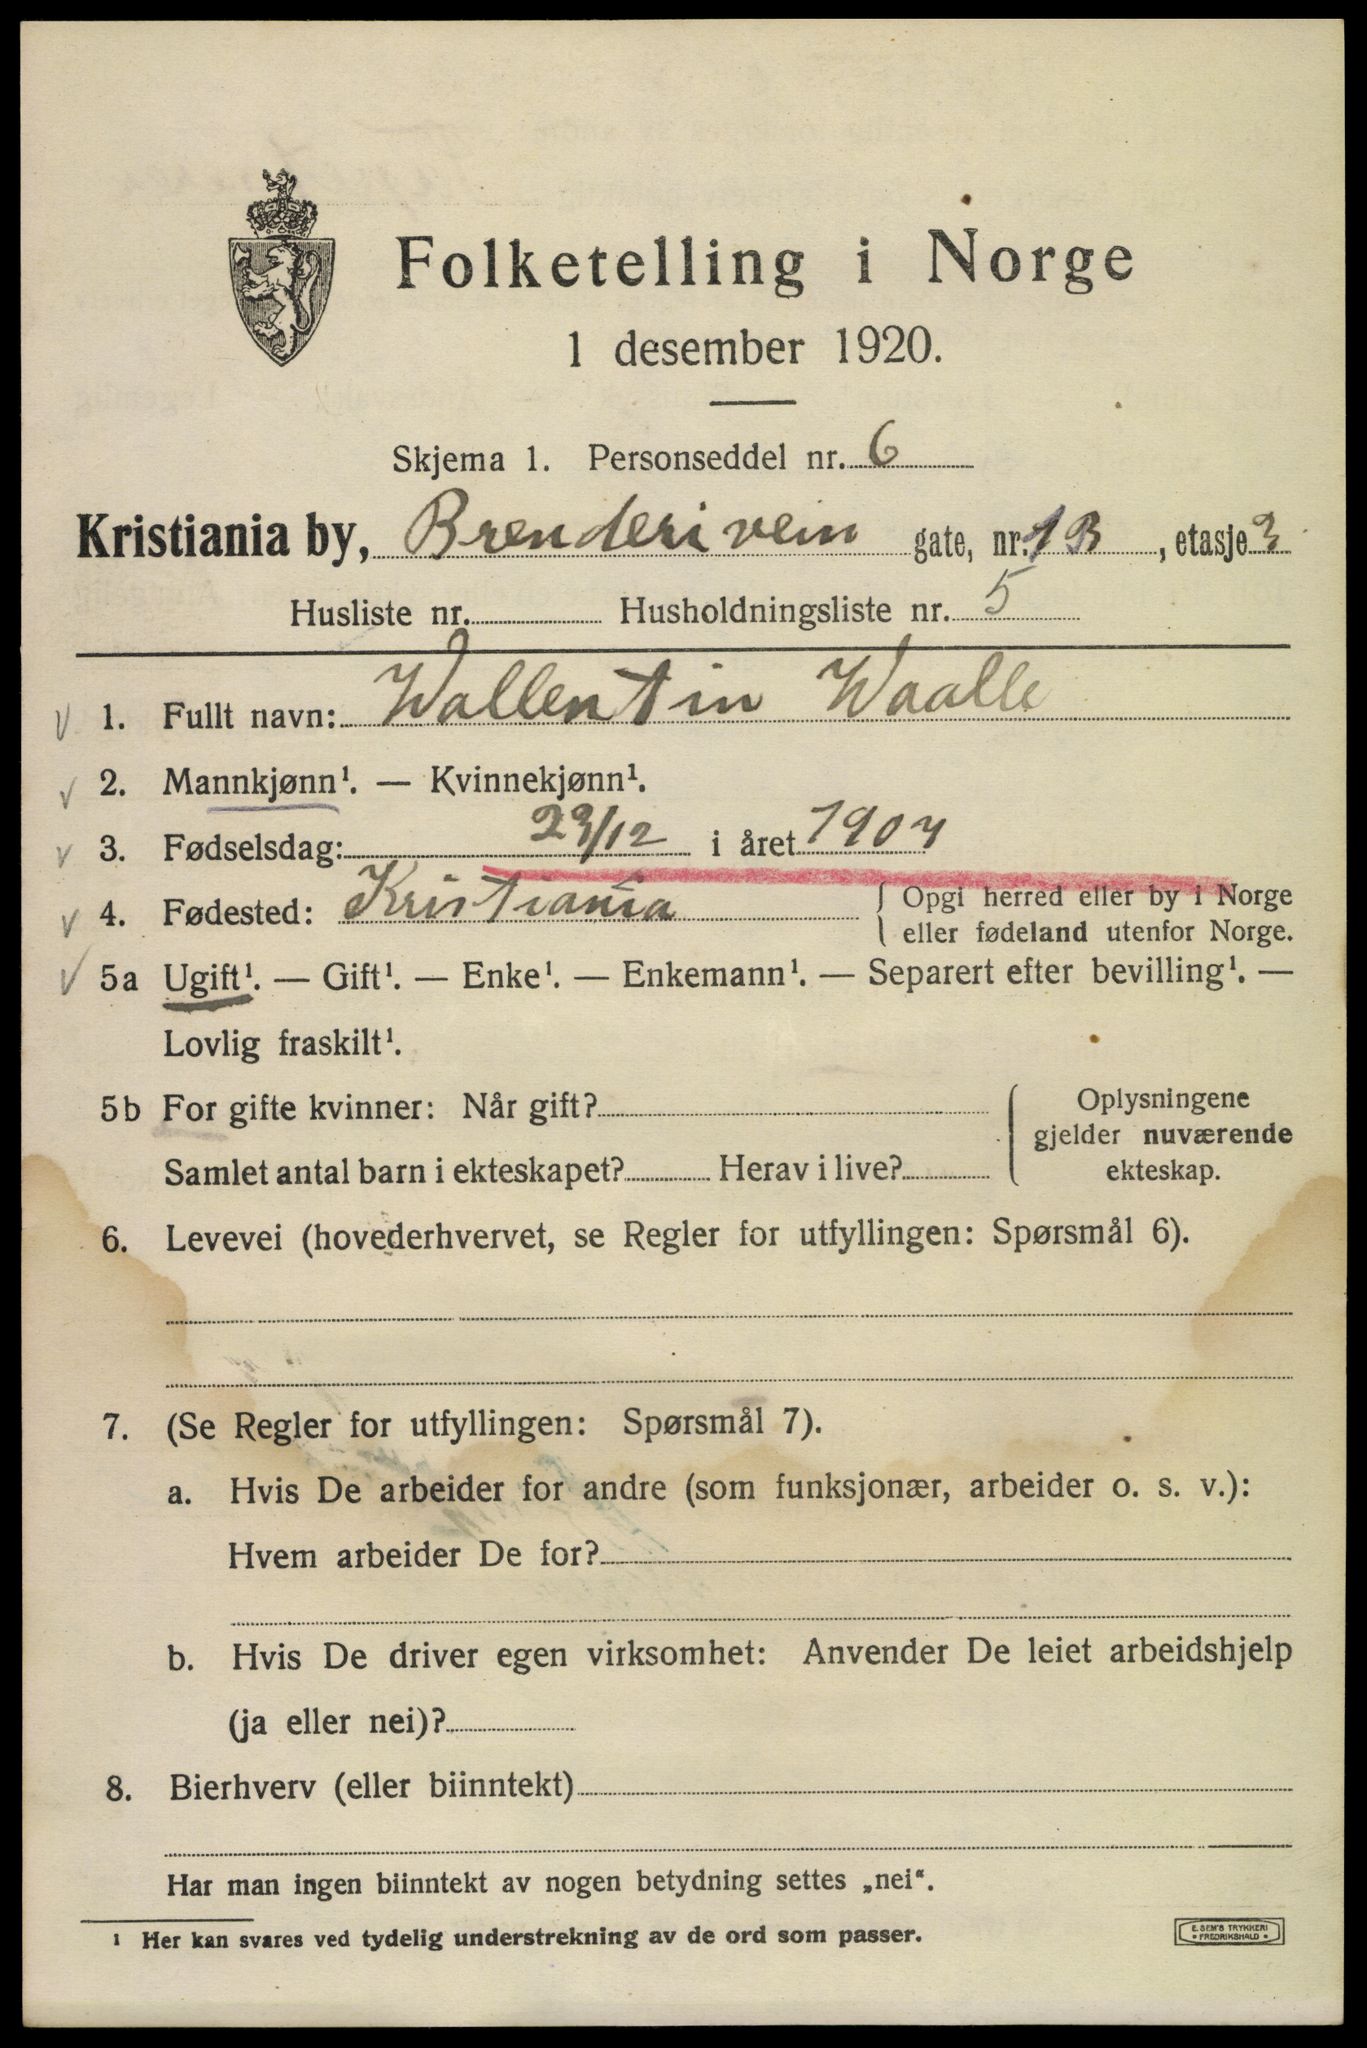 Folketelling i Norge
1 desember 1920.
Skjema 1. Personseddel nr. 6
Kristiania by, Brenderivein gate, nr. 1B, etasje 3
Husliste nr. Husholdningsliste nr. 5
1. Fullt navn: Wallentin Waalle
2. Mannkjønn¹. — Kvinnekjønn¹.
3. Fødselsdag: 23/12 i året
4. Fødested: Kristiania Opgi herred eller by i Norge
eller fødeland utenfor Norge.
5a Ugift¹. — Gift¹. — Enke¹. — Enkemann¹. — Separert efter bevilling¹. —
Lovlig fraskilt¹.
5b For gifte kvinner: Når gift?
Samlet antal barn i ekteskapet? Herav i live?
Oplysningene
gjelder nuværende
ekteskap.
6. Levevei (hovederhvervet, se Regler for utfyllingen: Spørsmål 6).
7. (Se Regler for utfyllingen: Spørsmål 7).
a. Hvis De arbeider for andre (som funksjonær, arbeider o. s. v.):
Hvem arbeider De for?
b. Hvis De driver egen virksomhet: Anvender De leiet arbeidshjelp
(ja eller nei)?
8. Bierhverv (eller biinntekt)
Har man ingen biinntekt av nogen betydning settes „nei“.
¹ Her kan svares ved tydelig understrekning av de ord som passer.
E. SEM'S TRYKKERI
FREDRIKSHALD